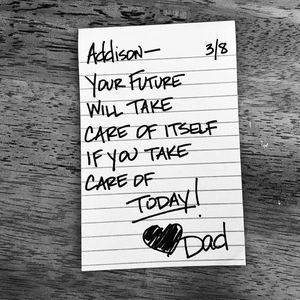 Addison— 3/8
YOUR FUTURE
WILL TAKE
CARE OF ITSELF
IF YOU TAKE
CARE OF
TODAY!
Dad